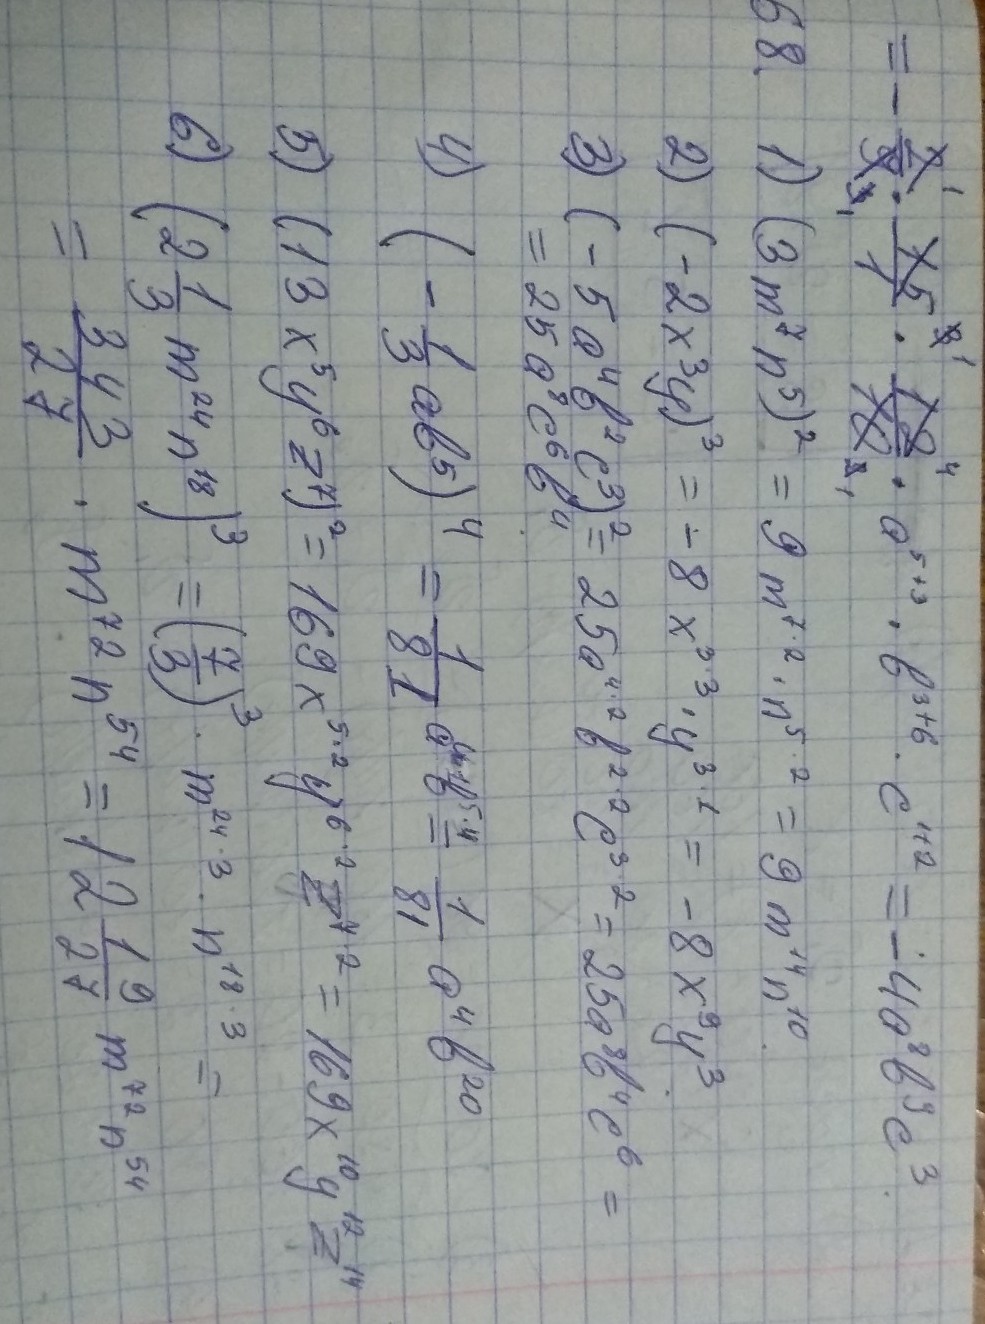 = - · 5/1 · · a⁵⁺³ · b³⁺⁶ · c¹⁺² = - 4a⁸b⁹c³.
68. 1) (3m⁷n⁵)² = 9m⁷·² · n⁵·² = 9m¹⁴n¹⁰.
2) (-2x³y)³ = -8x³·³ · y³·¹ = -8x⁹y³
3) (-5a⁴b²c³)² = 25a⁴·²b²·²c³·² = 25a⁸b⁴c⁶ =
= 25a⁸c⁶b⁴
4) (-1/3 ab⁵)⁴ = 1/81 b⁵·⁴ = 1/81 a⁴b²⁰
5) (13x⁵y⁶z⁷)² = 169x⁵·²y⁶·²z⁷·² = 169x¹⁰y¹²z¹⁴
6) (2 1/3 m²⁴n¹⁸)³ = (7/3)³ · m²⁴·³ · n¹⁸·³ =
= 343/27 · m⁷²n⁵⁴ = 12 19/27 m⁷²n⁵⁴